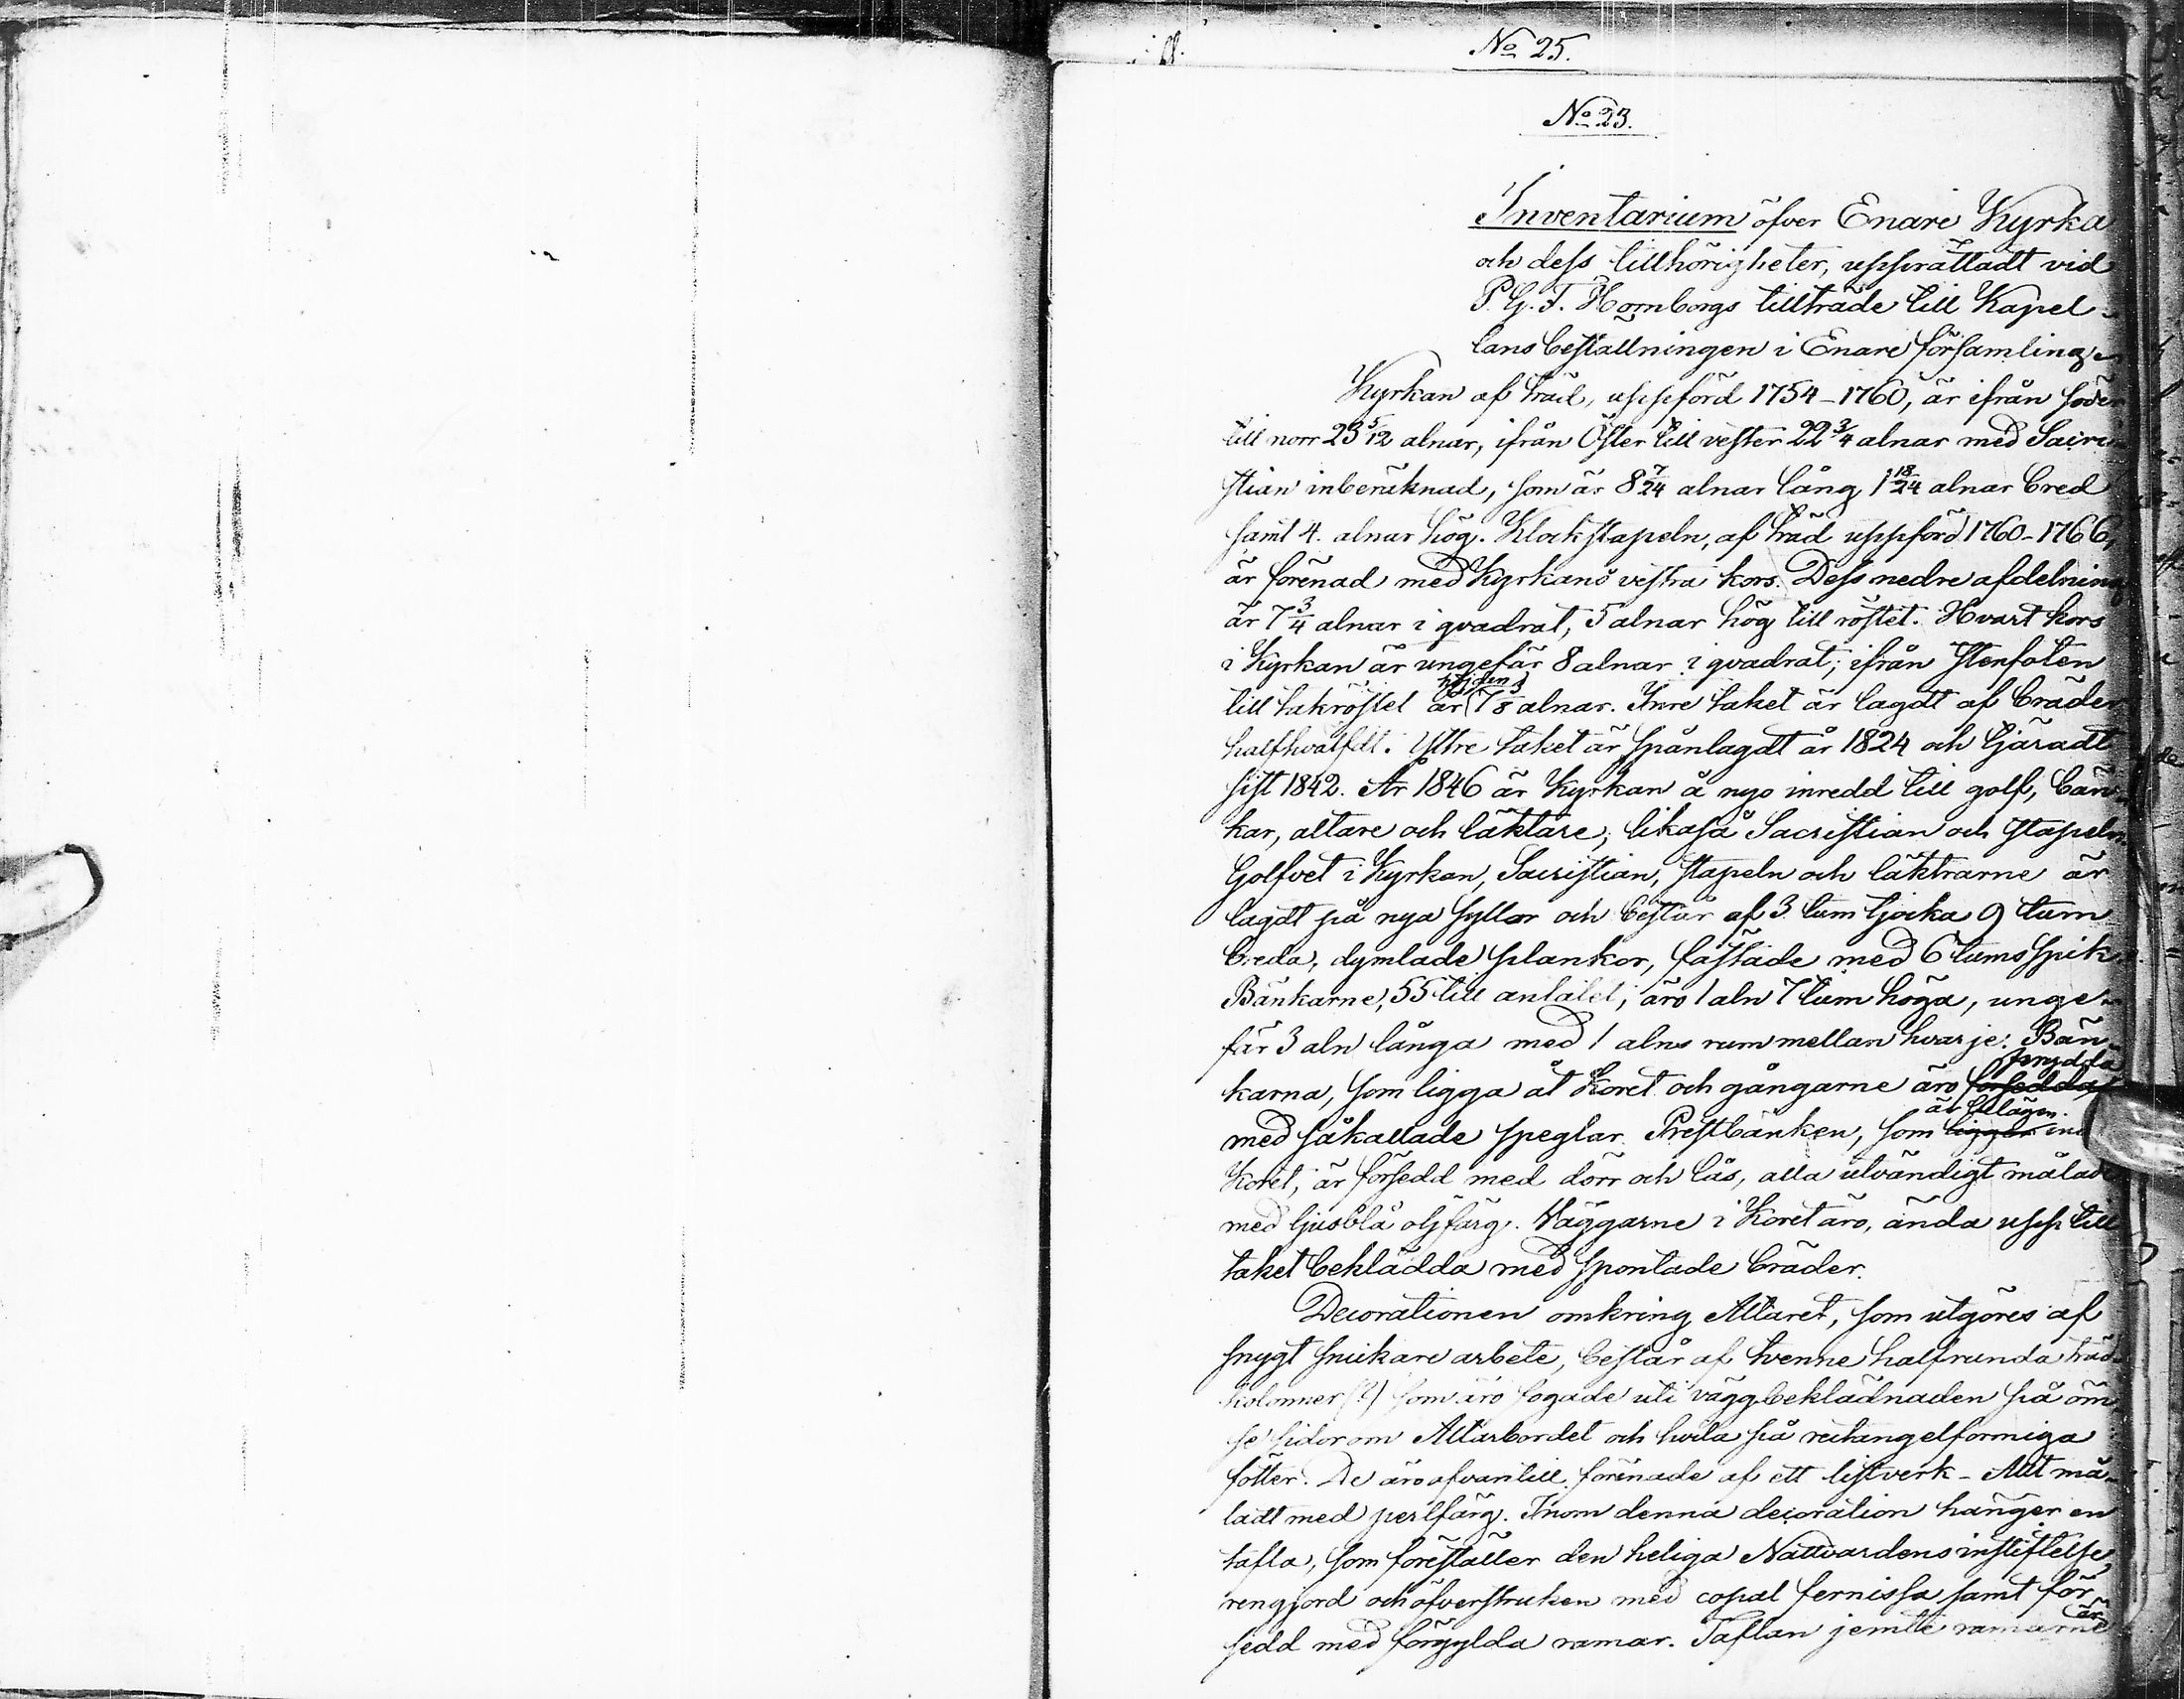 No 25.
No 23.
Inventarium öfver Enare Kyrka
och dess tillhörigheter, upprättadt vid
P. G. T. Hornborgs tillträde till Kapel-
lansbeställningen i Enare församling.
Kyrkan af träd, uppförd 1754-1760, är ifrån söder
till norr 23 5/12 alnar, ifrån Öster till vester 22 3/4 alnar med Sacri-
stian inberäknad, som är 8 7/24 alnar lång 1 18/24 alnar bred
samt 4. alnar hög. Klockstapeln, af träd uppförd 1760-1766,
är förenad med Kyrkans vestra kors. Dess nedre afdelning
är 7 3/4 alnar i qvadrat, 5 alnar hög till röstet. Hvart kors
i Kyrkan är ungefär 8 alnar i qvadrat; ifrån Stenfoten
till takröstet är höjden 7 5/8 alnar. Inre taket är lagdt af bräder
halfhvälfdt. Yttre taket är spånlagdt år 1824 och tjäradt
sist 1842. År 1846 är Kyrkan å nyo inredd till golf, bän-
kar, altare och läktare; likaså Sacristian och Stapeln.
Golfvet i Kyrkan, Sacristian, Stapeln och läktrarne är
lagdt på nya syllar och består af 3 tum tjocka 9 tum
breda, dymlade plankor, fästade med 6 tums spik.
Bänkarne, 55 till antalet, äro 1 aln 7 tum höga, unge-
fär 3 aln långa med 1 alns rum mellan hvarje. Bän-
karna, som ligga åt Koret och gångarne äro försedda prydda
med såkallade speglar. Prestbänken, som ligger är belägen in
Koret, är försedd med dörr och lås, alla utvändigt målade
med ljusblå oljfärg. Väggarne i Koret äro, ända upp till
taket beklädda med spontade bräder.
Decorationen omkring Altaret, som utgöres af
snygt snickare arbete, består af tvenne halfrunda träd-
kolonner (?) som äro fogade uti väggbeklädnaden på öm-
se sidor om Altarbordet och hvila på rectangelformiga
fötter. De äro ofvantill förenade af ett listverk - Allt må-
ladt med perlfärg. Inom denna decoration hänger en
tafla, som föreställer den heliga Nattvardens instiftelse,
rengjord och öfverstruken med copal fernissa samt för-
sedd med förgylda ramar. Taflan jemte ramarne är